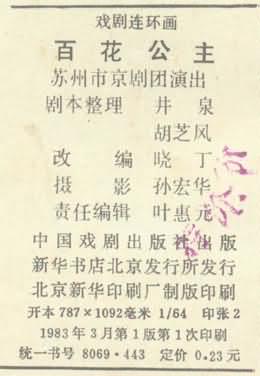 戏剧连环画
百花公主
苏州市京剧团演出
剧本整理 井泉
胡芝风
改编 晓丁
摄影 孙宏华
责任编辑 叶惠元
中国戏剧出版社出版
新华书店北京发行所发行
北京新华印刷厂制版印刷
开本787×1092毫米 1/64 印张2
1983年3月第1版第1次印刷
统一书号 8069·443 定价 0.23元